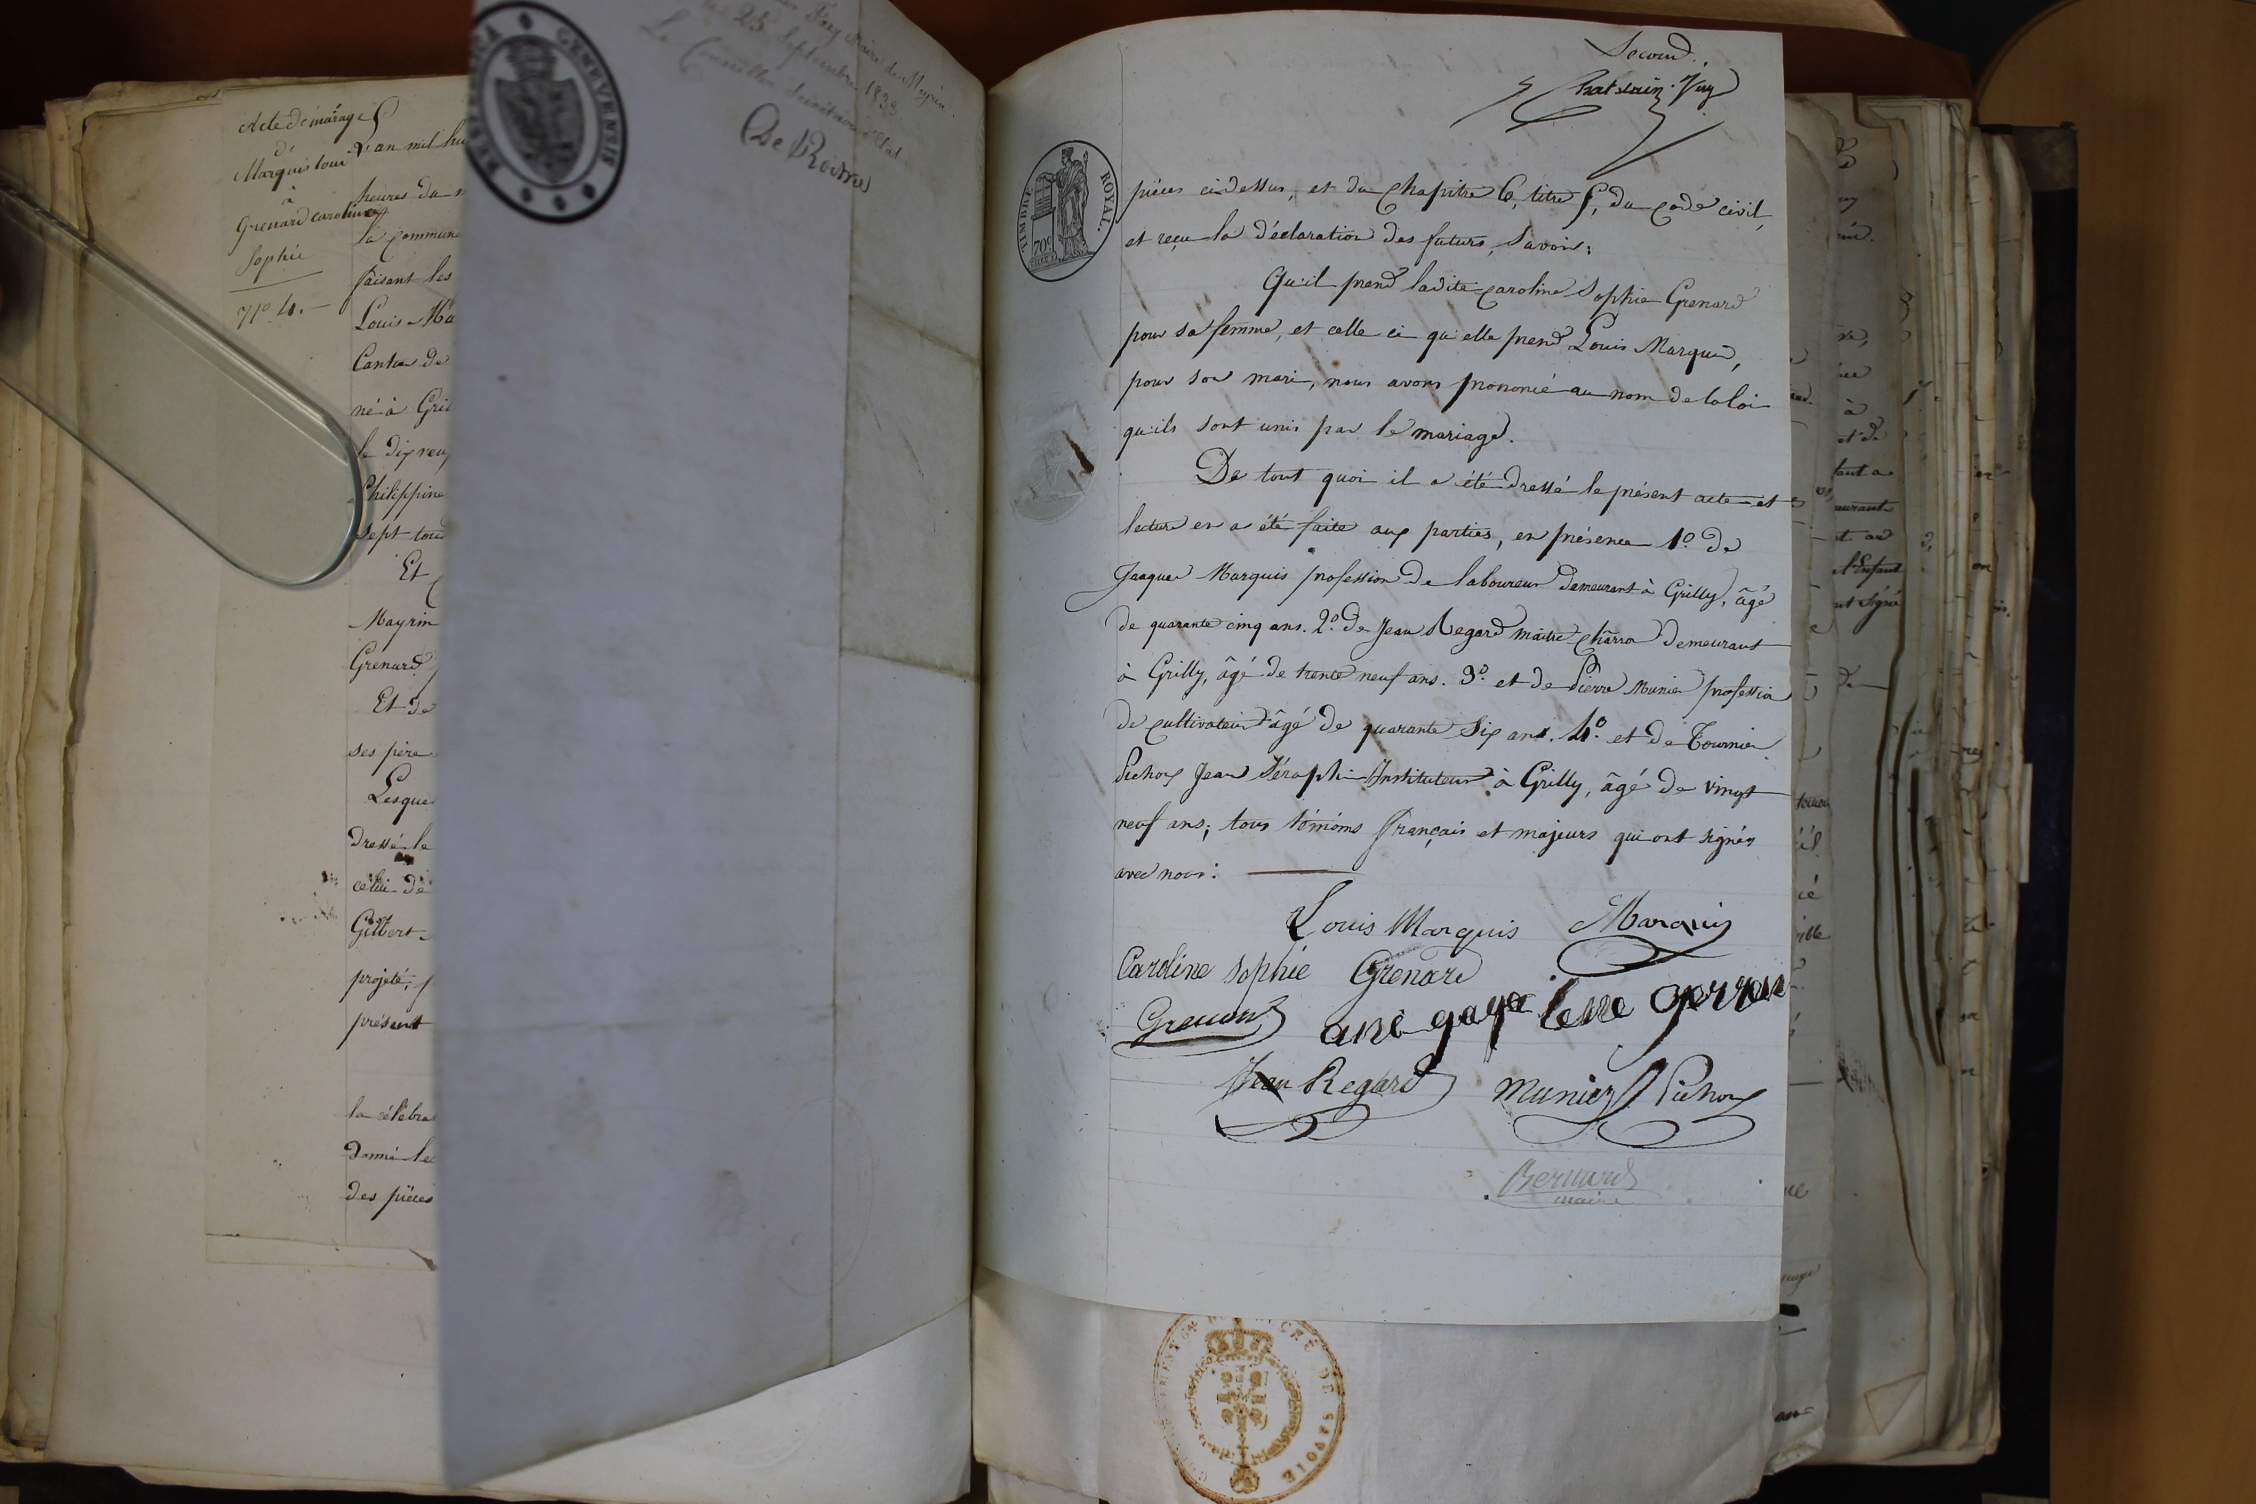 Acte de mariage
de
Marquis louis
à
Grenard caroline
Sophie
N° 4.
L'an mil hu
heures du m
la commune
faisant les
Louis Ma
Canton de
né à Gril
le dix neuf
Philippine
sept tous
Et
Mayrin
Grenard
Et de
ses père
Lesque
dressé le
celui de
Gilbert
projeté,
présent
la célébra
donné lec
des pièces
GENEVENSIS
Maire de Meyrin
25 Septembre 1833
Le Conseiller Secrétaire d'Etat
De Roches
Second.
TIMBRE ROYAL.
70c
pièces ci-dessus, et du chapitre 6, titre 5, du code civil,
et reçu la déclaration des futurs, Savoir:
Qu'il prend ladite caroline Sophie Grenard
pour sa femme, et celle ci qu'elle prend Louis Marquis,
pour son mari, nous avons prononcé au nom de la loi
qu'ils sont unis par le mariage.
De tout quoi il a été dressé le présent acte et
lecture en a été faite aux parties, en présence 1º. de
Jacques Marquis profession de laboureur demeurant à Grilly, âgé
de quarante cinq ans. 2º. de Jean Regard maître charron demeurant
à Grilly, âgé de trente neuf ans. 3º. et de Pierre Munier profession
de cultivateur âgé de quarante six ans. 4º. et de Tournier
Pichoux Jean Séraphin Instituteur à Grilly, âgé de vingt
neuf ans; tous témoins français et majeurs qui ont signés
avec nous:
Louis Marquis Marquis
Caroline Sophie Grenard
Grenard
Jean Regard Munier Pichoux
Bernard
maire
DE SAVOIE